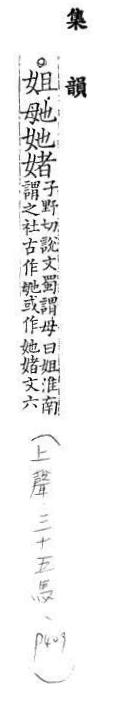 集韻
。姐毑她媎子野切說文蜀謂母曰姐淮南
謂之社古作毑或作她媎文六
(上聲.三十五馬、P409)